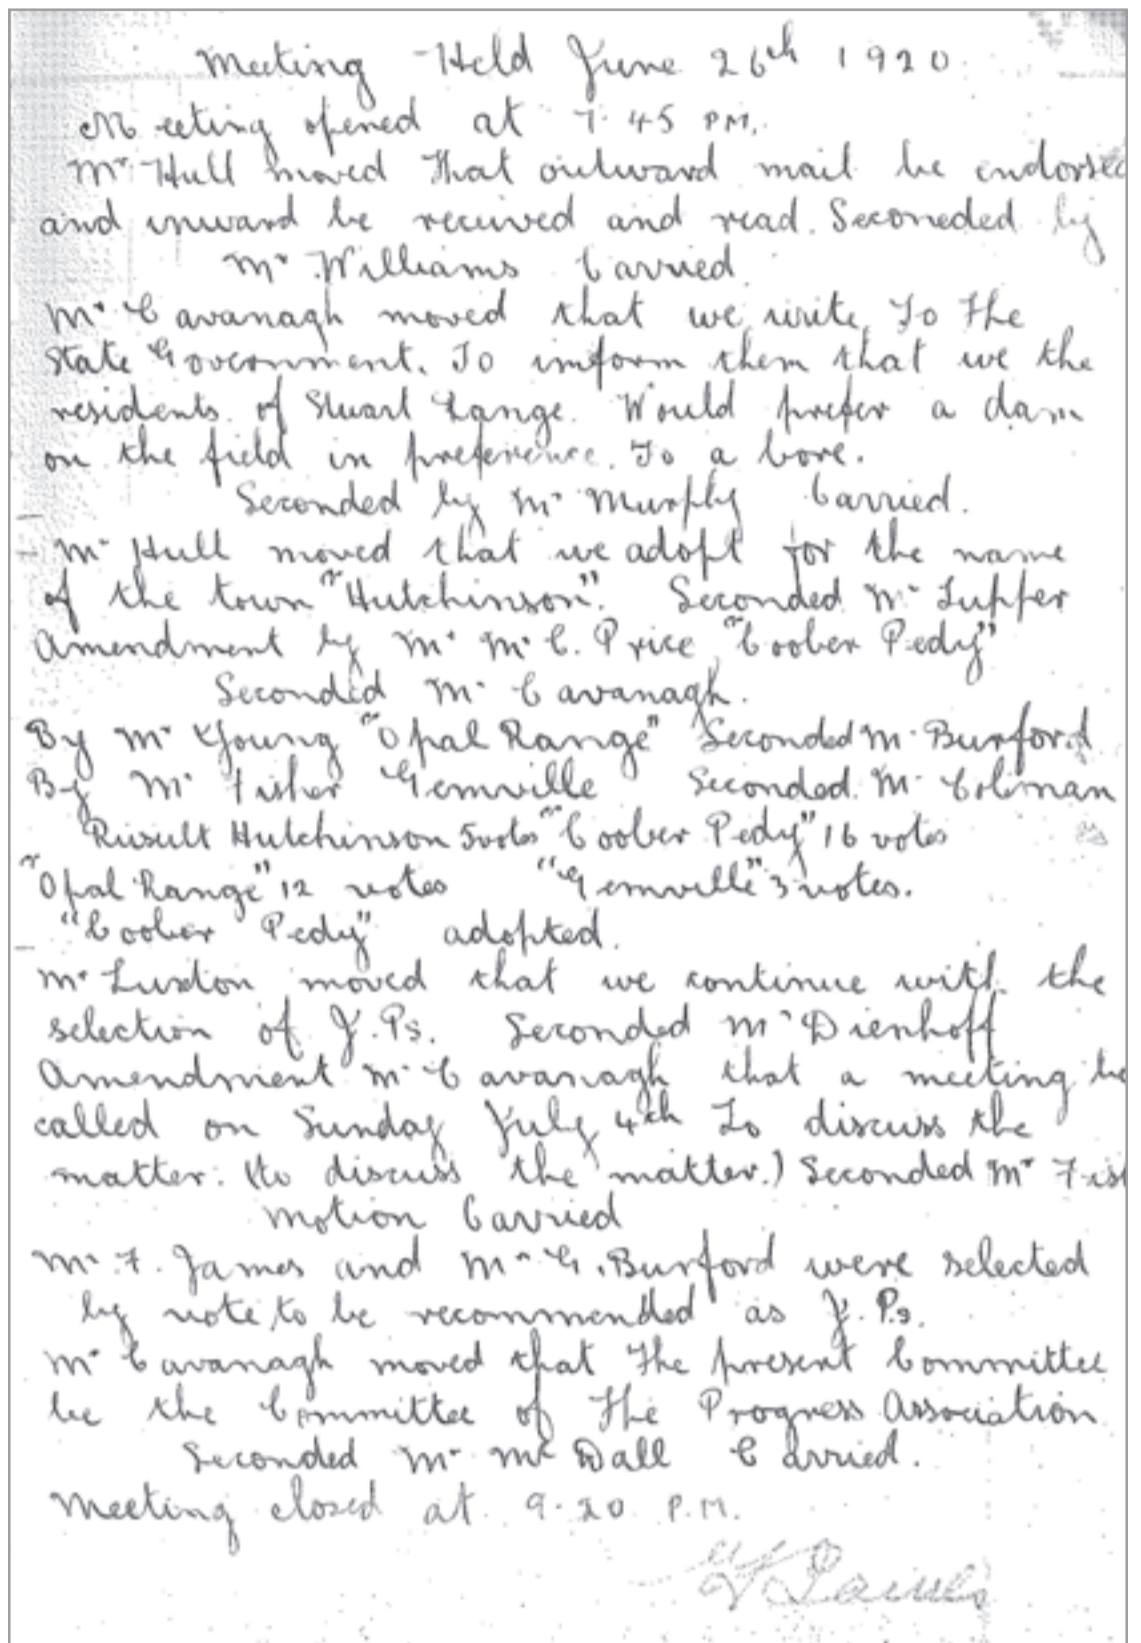 Meeting Held June 26th 1920
Meeting opened at 7.45 PM.
Mr Hull moved that outward mail be endorsed
and inward be received and read. Seconeded by
Mr Williams Carried
Mr Cavanagh moved that we write To the
State Government. To imform them that we the
residents of Stuart Range. Would prefer a dam
on the field in preference. To a bore.
Seconded by Mr Murphy Carried.
Mr Hull moved that we adopt for the name
of the town "Hutchinson". Seconded Mr Lupfer
Amendment by Mr Mc C. Price "Coober Pedy"
Seconded Mr Cavanagh.
By Mr Young "Opal Range" Seconded Mr Burford
By Mr Fisher Gemville Seconded. Mr Coleman
Result Hutchinson 5 votes "Coober Pedy" 16 votes
"Opal Range" 12 votes "Gemville" 3 votes.
"Coober Pedy" adopted.
Mr Luxton moved that we continue with the
selection of J.Ps. Seconded Mr Dienhoff
Amendment Mr Cavanagh that a meeting be
called on Sunday July 4th To discuss the
matter. (to discuss the matter.) Seconded Mr Fis
Motion Carried
Mr F. James and Mr G. Burford were selected
by vote to be recommended as J.Ps.
Mr Cavanagh moved that the present Committee
be the Committee of the Progress Association
Seconded Mr Mc Dall Carried.
Meeting closed at 9.20 P.M.